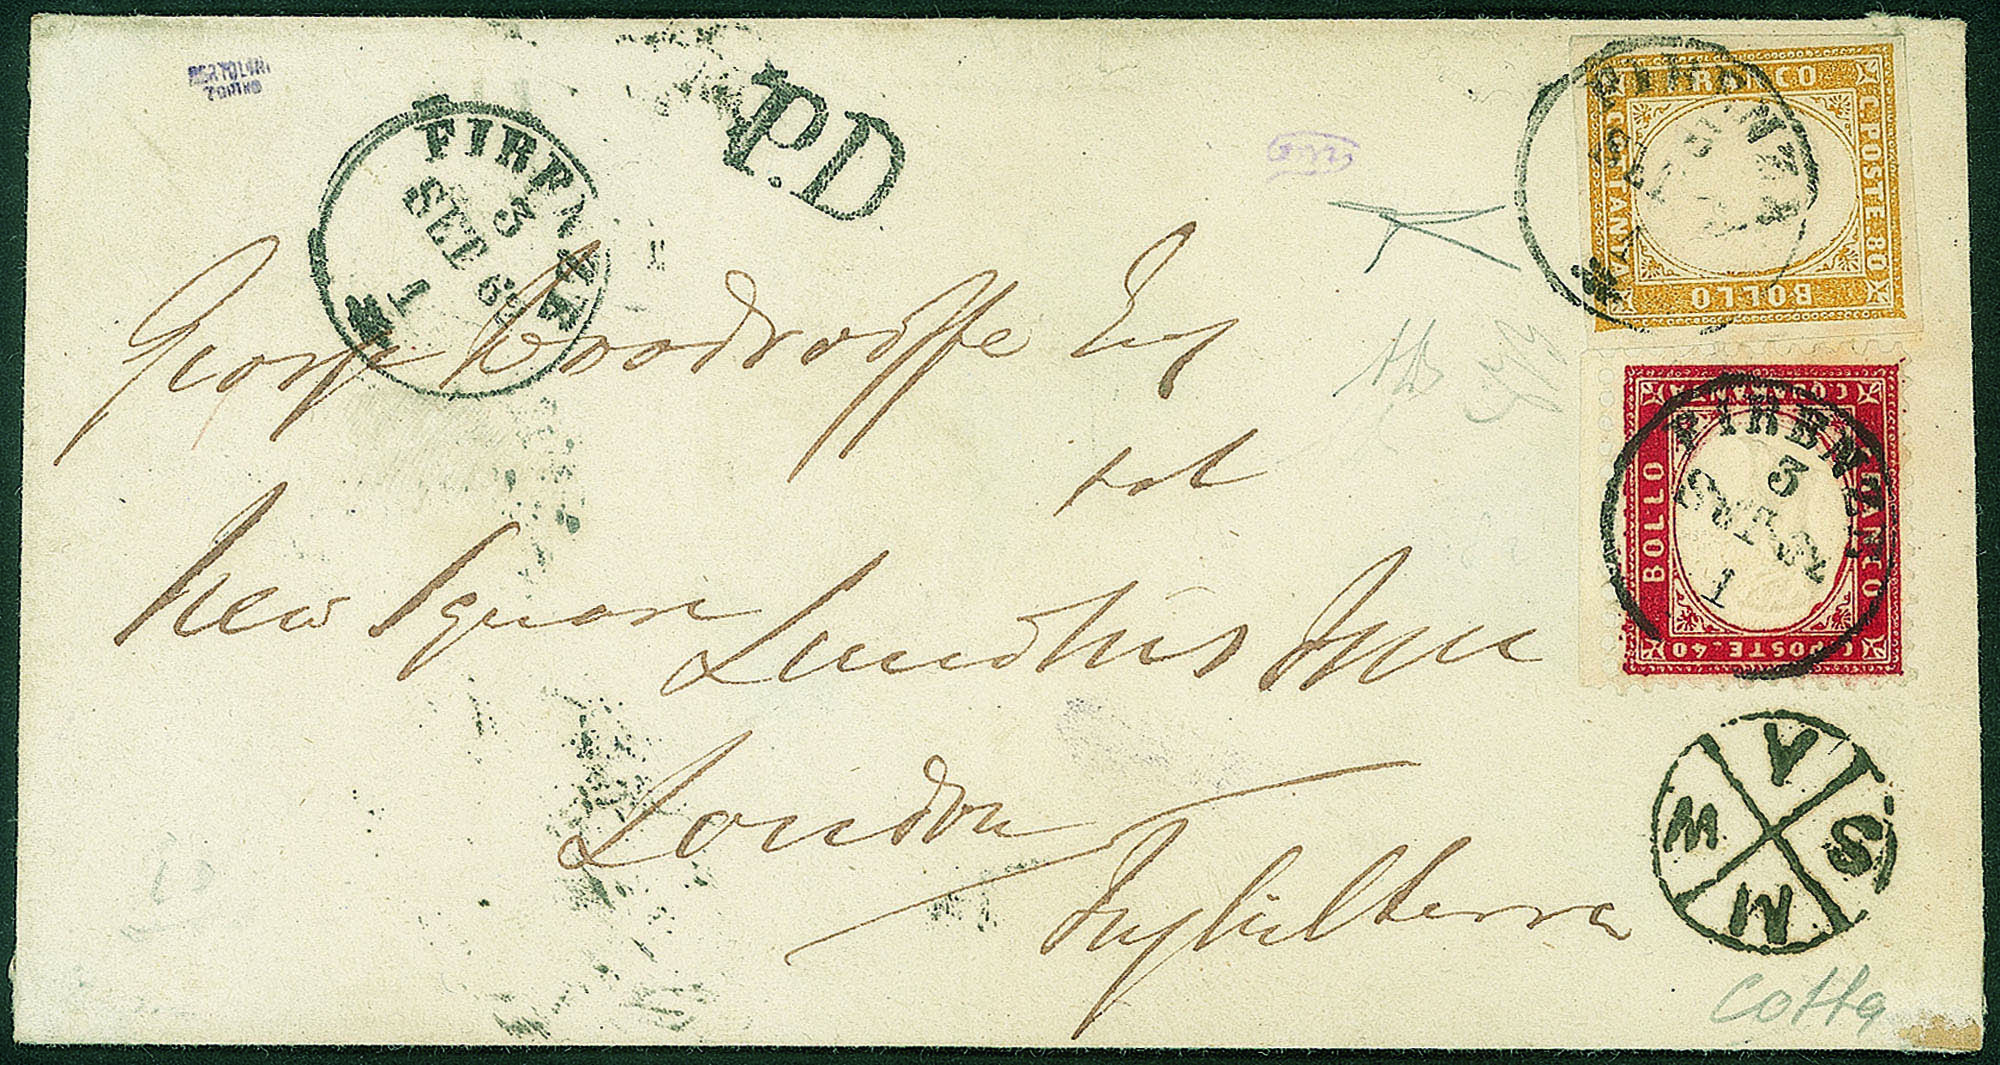 BERTOLINI
TORINO
P.D
FIRENZE
3
SET 62
1
George Woodrooffe Esq
New Square Lincolns Inn
London
Inghilterra
FRANCO
C. POSTE. 80
BOLLO
OTTANTA
FIRENZE
SET
1
QUARANTA
BOLLO
FRANCO
C. POSTE. 40
FIRENZE
3
SET 62
1
V
M S
M
Cotta